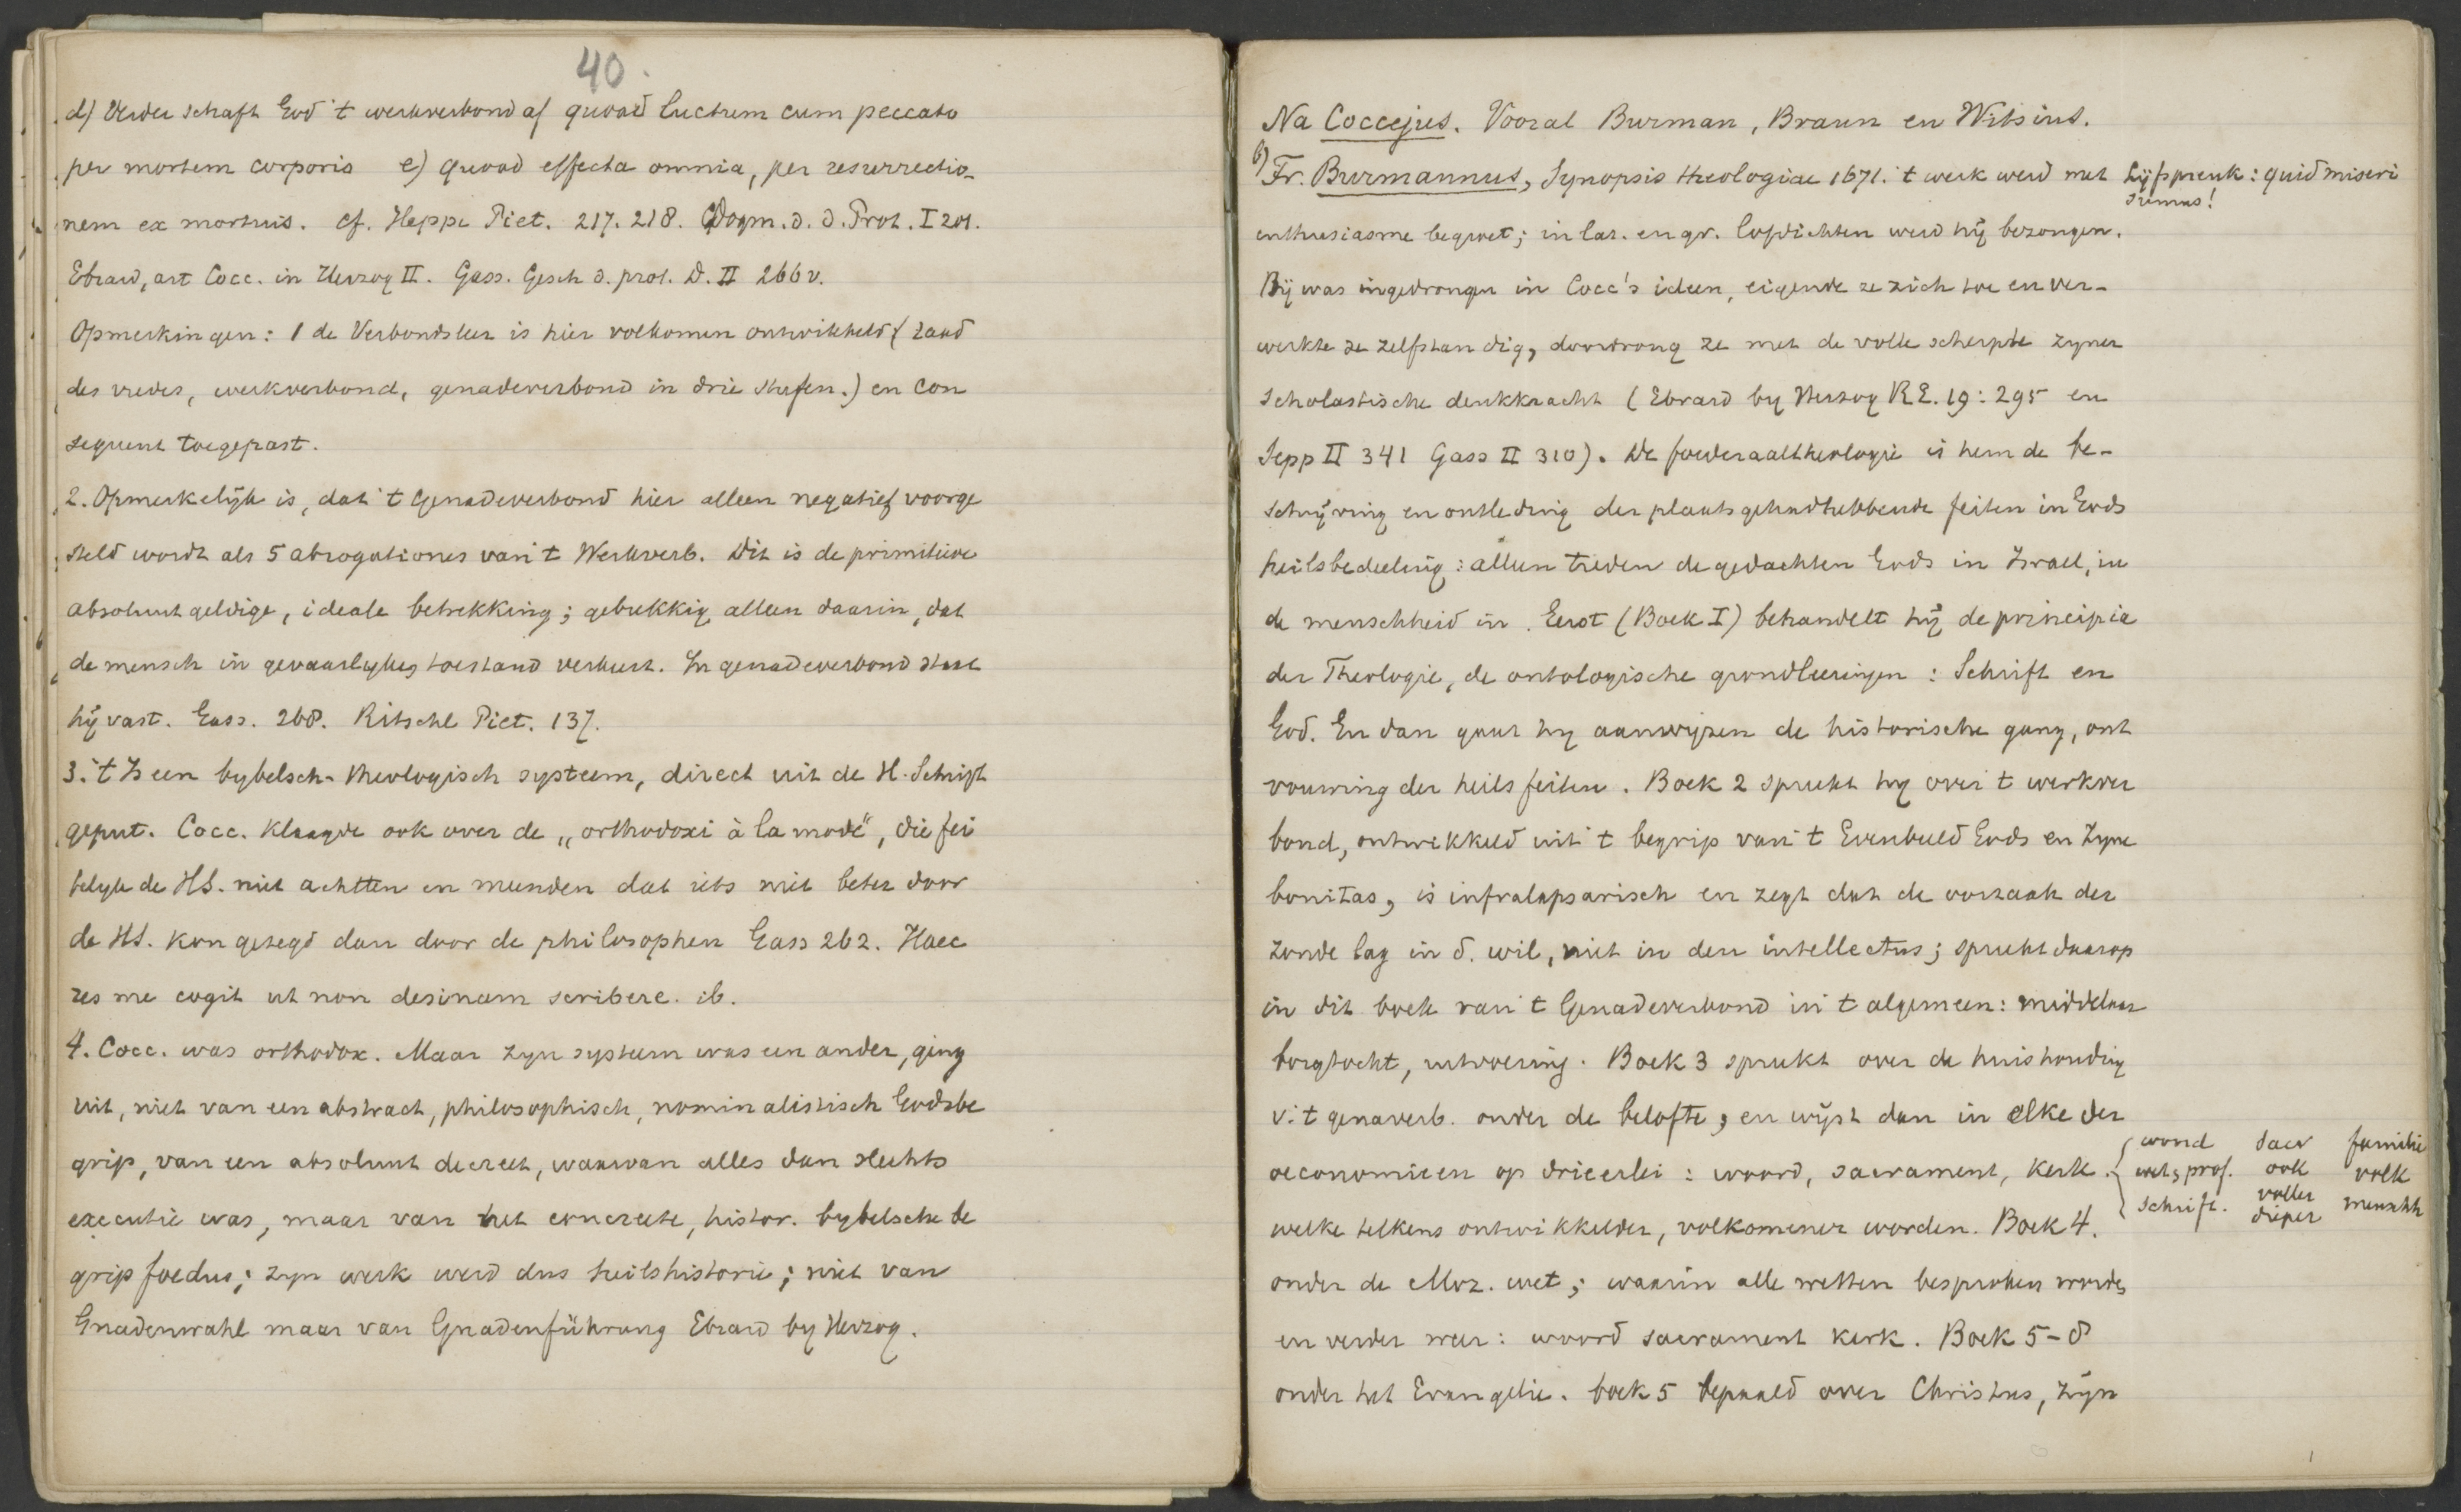 40.
d) Verder schaft God 't werkverbond af quoad luctum cum peccato
per mortem corporis e) quoad effecta omnia, per resurrectio-
nem ex mortuis. cf. Heppe Piet. 217. 218. Dogm. d. d. Prot. I 201.
Ebrard, art Cocc. in Herzog II. Gass. Gesch d. prot. D. II 266 v.
Opmerkingen: 1 de Verbondsleer is hier volkomen ontwikkeld (raad
des vredes, werkverbond, genadeverbond in drie stufen.) en con
sequent toegepast.
2. Opmerkelijk is, dat 't Genadeverbond hier alleen negatief voorge
steld wordt als 5 abrogationes van 't Werkverb. Dit is de primitieve
absoluut geldige, ideale betrekking; gebrekkig alleen daarin, dat
de mensch in gevaarlyken toestand verkeert. In genadeverbond staat
hij vast. Gass. 268. Ritschl Piet. 137.
3. 't Is een bybelsch-theologisch systeem, direct uit de H. Schrift
geput. Cocc. klaagde ook over de „orthodoxi à la mode", die fei
telyk de HS. niet achtten en meenden dat iets niet beter door
de HS. kon gezegd dan door de philosophen Gass 262. Haec
res me cogit ut non desinam scribere. ib.
4. Cocc. was orthodox. Maar zyn systeem was een ander, ging
uit, niet van een abstract, philosophisch, nominalistisch Godsbe
grip, van een absoluut decreet, waarvan alles dan slechts
executie was, maar van het concreete, histor. bybelsche be
grip foedus; zyn werk werd dus heilshistorie; niet van
Gnadenwahl maar van Gnadenführung Ebrard by Herzog.
Na Coccejus. Vooral Burman, Braun en Witsius.
6) Fr. Burmannus, Synopsis theologiae 1671. 't werk werd met lijfspreuk: quid miseri
sumus!
enthusiasme begroet; in lat. en gr. lofdichten werd hij bezongen.
Hij was ingedrongen in Cocc's ideen, eigende ze zich toe en ver-
werkte ze zelfstandig, doordrong ze met de volle scherpte zyner
scholastische denkkracht (Ebrard by Herzog R.E. 19: 295 en
Sepp II 341 Gass II 310). De foederaaltheologie is hem de be-
schrijving en ontleding der plaatsgehadhebbende feiten in Gods
heilsbedeeling: alleen treden de gedachten Gods in Israel, in
de menschheid in. Eerst (Boek I) behandelt hij de principia
der Theologie, de ontologische grondleeringen: Schrift en
God. En dan gaat hy aanwijzen de historische gang, ont
vouwing der heilsfeiten. Boek 2 spreekt hy over 't werkver
bond, ontwikkeld uit 't begrip van 't Evenbeeld Gods en Zyne
bonitas, is infralapsarisch en zegt dat de oorzaak der
zonde lag in d. wil, niet in den intellectus; spreekt daarop
in dit boek van 't Genadeverbond in 't algemeen: middelaar
borgtocht, uitvoering. Boek 3 spreekt over de huishouding
v. 't genaverb. onder de belofte, en wijst dan in elke der
oeconomieen op drieerlei: woord, sacrament, kerk.
{ woord sacr familie
wet, prof. ook volk
Schrift. voller dieper menschh
welke telkens ontwikkelder, volkomener worden. Boek 4.
onder de Moz. wet; waarin alle wetten besproken worden
en verder weer: woord sacrament kerk. Boek 5-8
onder het Evangelie. boek 5 bepaald over Christus, zijn